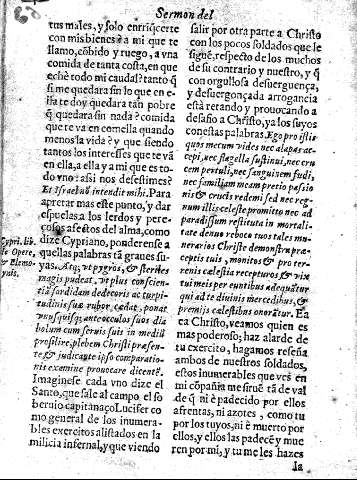 Sermon del
tus males, y solo enrriq̃certe
con mis bienes? a mi que te
llamo, cõbido y ruego, a vna
comida de tanta costa, en que
echè todo mi caudal? tanto q̃
si me quedara sin lo que en e-
lla te doy quedara tan pobre
q̃ quedara sin nada? comida
que te va en comella quando
menos la vida? y que siendo
tantos los intereses que te vã
en ella, a ella y a mi que es to-
do vno: assi nos desestimes?
Et Israel nõ intendit mihi. Para
apretar mas este punto, y dar
espuelas a los lerdos y pere-
cosos afectos del alma, como
dize Cypriano, ponderense a
quellas palabras tã graues su-
yas. Atq; vt pygros, & steriles
magis pudeat, vt plus conscien-
tiã sordidam dedecoris ac turpi-
tudinis suæ rubor cædat, ponat
vnusquisq; ante oculos suos dia
bolum cum seruis suis in mediũ
prosilire, plebem Christi præsen-
te & iudicante ipso comparatio-
nis examine prouocare dicentẽ.
Imaginese cada vno dize el
Santo, que sale al campo el so
beruio capitanaço Lucifer co
mo general de los inumera-
bles exercitos alistados en la
milicia infernal, y que viendo
Cypri. lib.
de Opere,
& Elemo-
synis.
salir por otra parte a Christo
con los pocos soldados que le
siguẽ, respecto de los muchos
de su contrario y nuestro, y q̃
con orgullosa desuerguença,
y desuergonçada arrogancia
està retando y prouocando a
desafio a Christo, ya los suyos
con estas palabras. Ego pro istis
quos mecum vides nec alapas ac-
cepi, nec flagella sustinui, nec cru
cem pertuli, nec sanguinem fudi,
nec familiam meam precio passio
nis & crucis redemi sed nec reg-
num illis celeste promitto nec ad
paradisum restituta in mortali-
tate denuo reboco tuos tales mu-
nerarios Christe demonstra præ-
ceptis tuis, monitos & pro ter-
renis cælestia recepturos & vix
tui meis pereuntibus adequãtur
qui ad te diuinis mercedibus, &
premijs cælestibus onorãtur. Ea
ea Christo, veamos quien es
mas poderoso; haz alarde de
tu exercito, hagamos reseña
ambos de nuestros soldados,
estos inumerables que ves en
mi cõpañia me siruẽ tã de val
de q̃ ni è padecido por ellos
afrentas, ni azotes, como tu
por los tuyos, ni è muerto por
ellos, y ellos las padecẽ y mue
ren por mi, y tu me les hazes
la